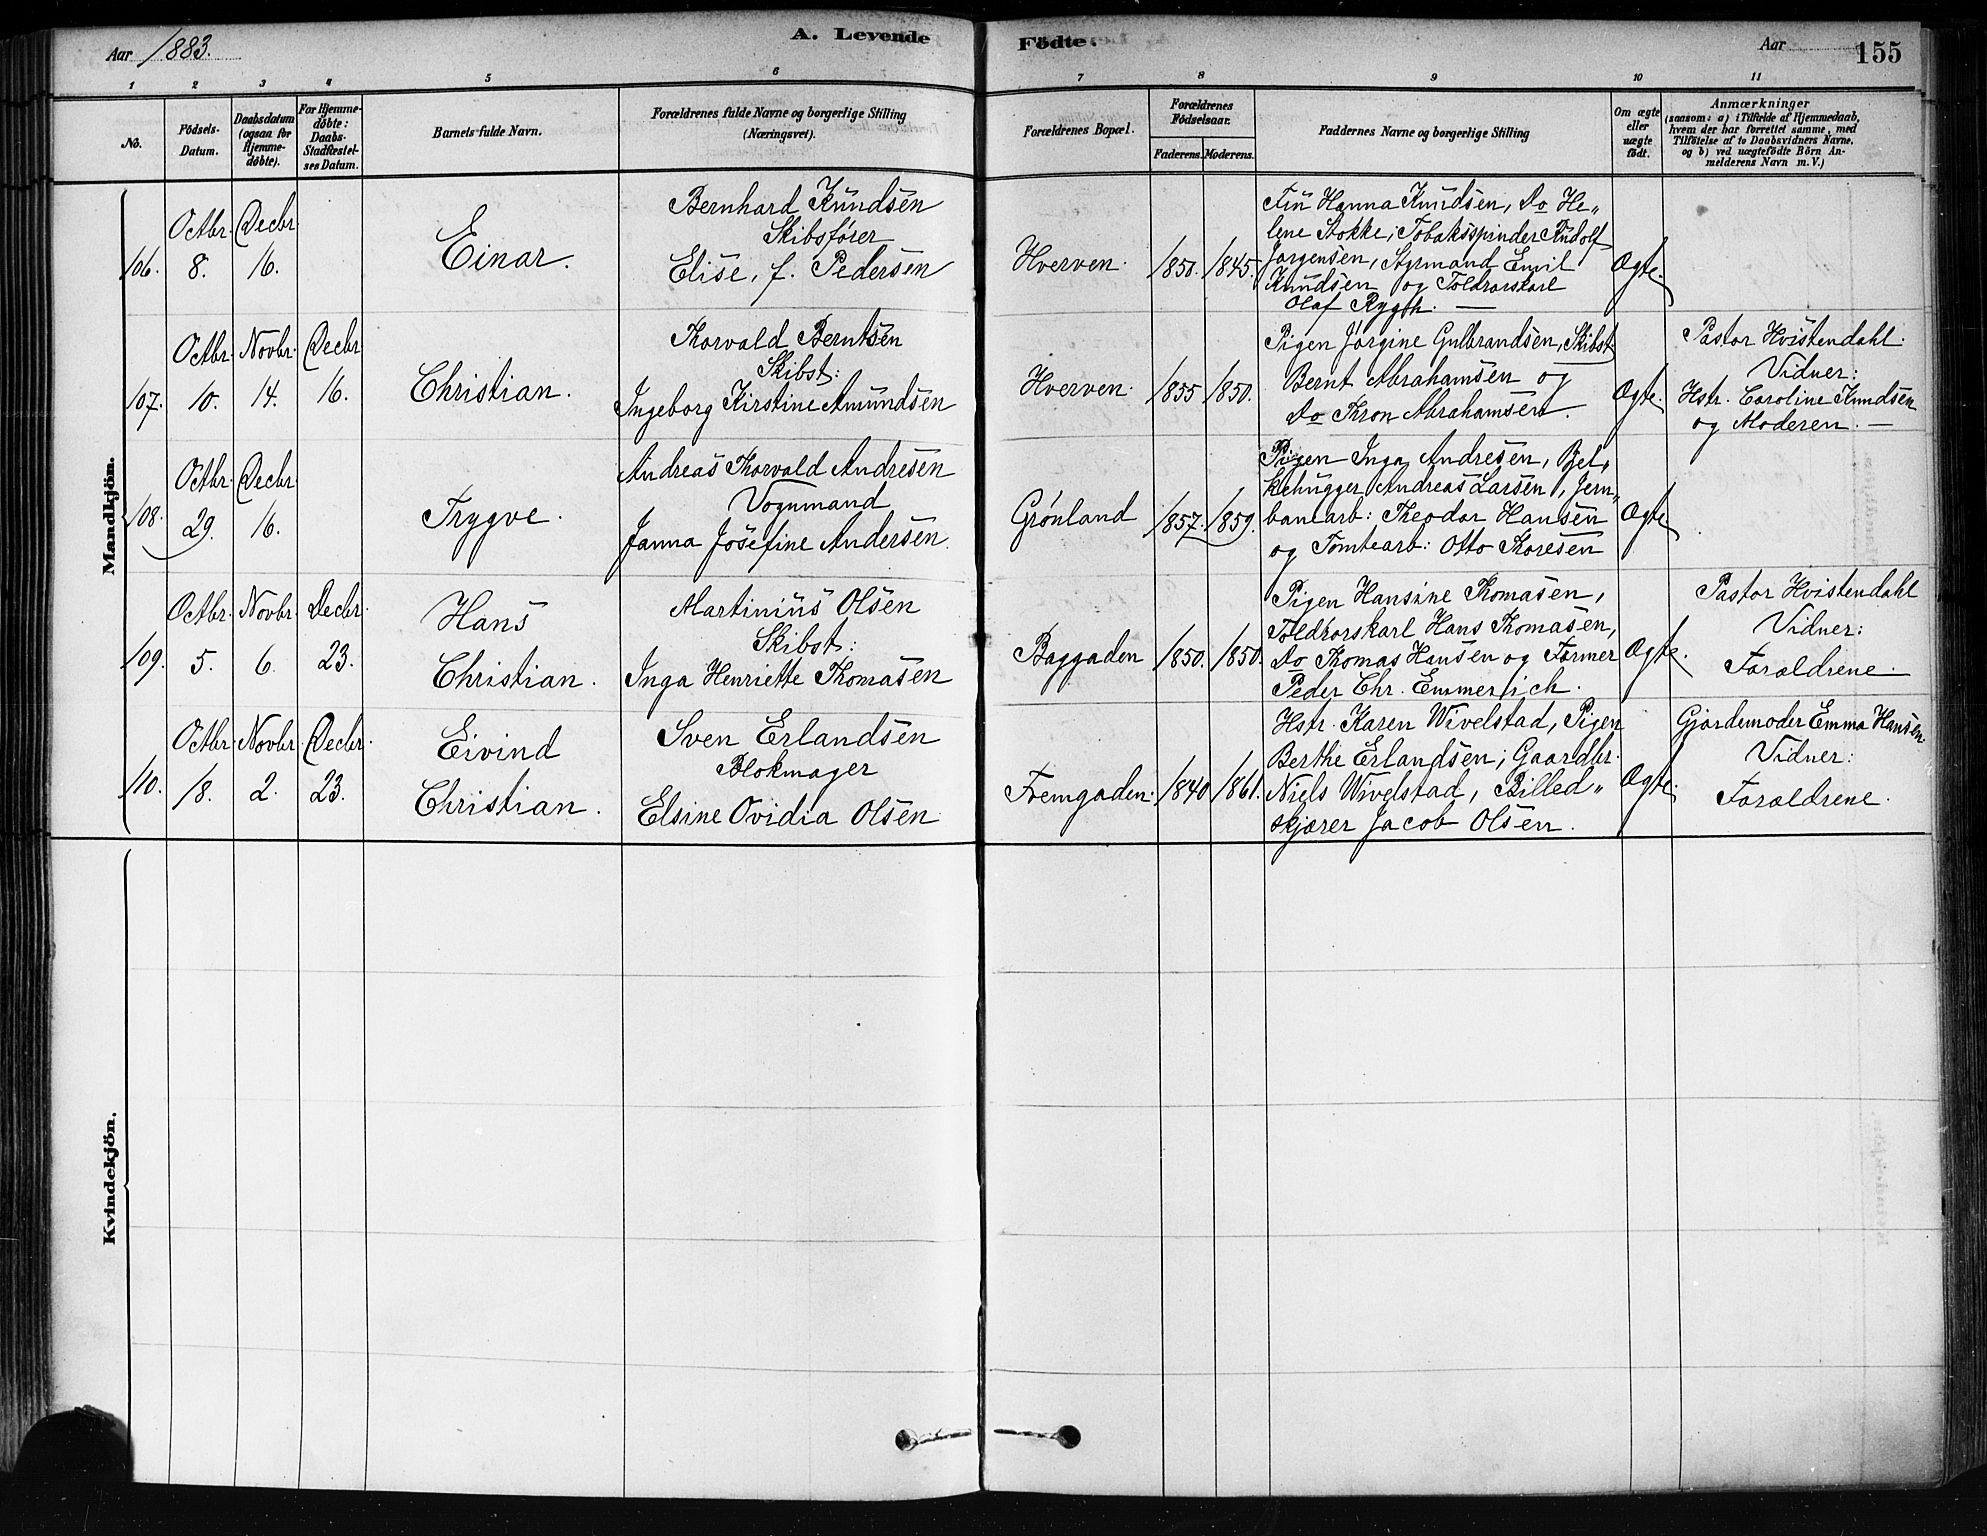 Aar 1883.
A. Levende
Födte.
Aar
155
1 2 3 4 5 6 7 8 9 10 11
No.
Födsels-
Datum.
Daabsdatum
(ogsaa for
Hjemme-
döbte).
For Hjemme-
döbte:
Daabs-
Stadfæstel-
ses Datum.
Barnets fulde Navn.
Forældrenes fulde Navne og borgerlige Stilling
(Næringsvei).
Forældrenes Bopæl.
Forældrenes
Födselsaar.
Faderens. Moderens.
Faddernes Navne og borgerlige Stilling
Om ægte
eller
uægte
födt.
Anmærkninger
(saasom: a) i Tilfælde af Hjemmedaab,
hvem der har forrettet samme, med
Tilföielse af to Daabsvidners Navne,
og b) ved uægtefödte Börn An-
melderens Navn m. V.)
Mandkjön.
106.
Octbr.
8.
Decbr
16.
Einar.
Bernhard Knudsen
Skibsfører
Elise, f. Pedersen
Hverven.
1850. 1845.
Frü Hanna Knudsen, Do He„
lene Stokke, Tobaksspinder Rudolf
Jørgensen, Styrmand Emil
Knudsen og Toldrorskarl
Olaf Rygh. —
Ægte.
107.
Octbr.
10.
Novbr.
14.
Decbr
16.
Christian.
Thorvald Berntsen
Skibst:
Ingeborg Kirstine Amundsen
Hverven.
1855 1850.
Pigen Jørgine Gulbrandsen, Skibst.
Bernt Abrahamsen og
Do Thron Abrahamsen.
Ægte.
Pastor Hvistendahl.
Vidner:
Hstr. Caroline Knudsen
og Moderen. —
108.
Octbr.
29.
Decbr.
16.
Trygve.
Andreas Thorvald Andresen
Vognmand
Janna Josefine Andersen.
Grønland
1857. 1859.
Pigen Inga Andresen, Bjel„
kehugger Andreas Larsen, Jern„
banearb: Theodor Hansen
og Tomtearb: Otto Thoresen
Ægte
109.
Octbr.
5.
Novbr.
6.
Decbr.
23.
Hans
Christian.
Martinius Olsen
Skibst:
Inga Henriette Thomasen
Baggaden
1850. 1850.
Pigen Hansine Thomasen,
Toldrorskarl Hans Thomasen,
Do Thomas Hansen og Former
Peder Chr. Emmerich.
Ægte.
Pastor Hvistendahl
Vidner:
Forældrene.
110.
Octbr
18.
Novbr.
2.
Decbr.
23.
Eivind
Christian.
Sven Erlandsen
Blokmager
Elsine Ovidia Olsen
Fremgaden.
1840 1861.
Hstr. Karen Wivelstad, Pigen
Berthe Erlandsen, Gaardbr.
Niels Wivelstad, Billed„
skjærer Jacob Olsen.
Ægte.
Gjordemoder Emma Hansen.
Vidner:
Forældrene.
Kvindekjön.